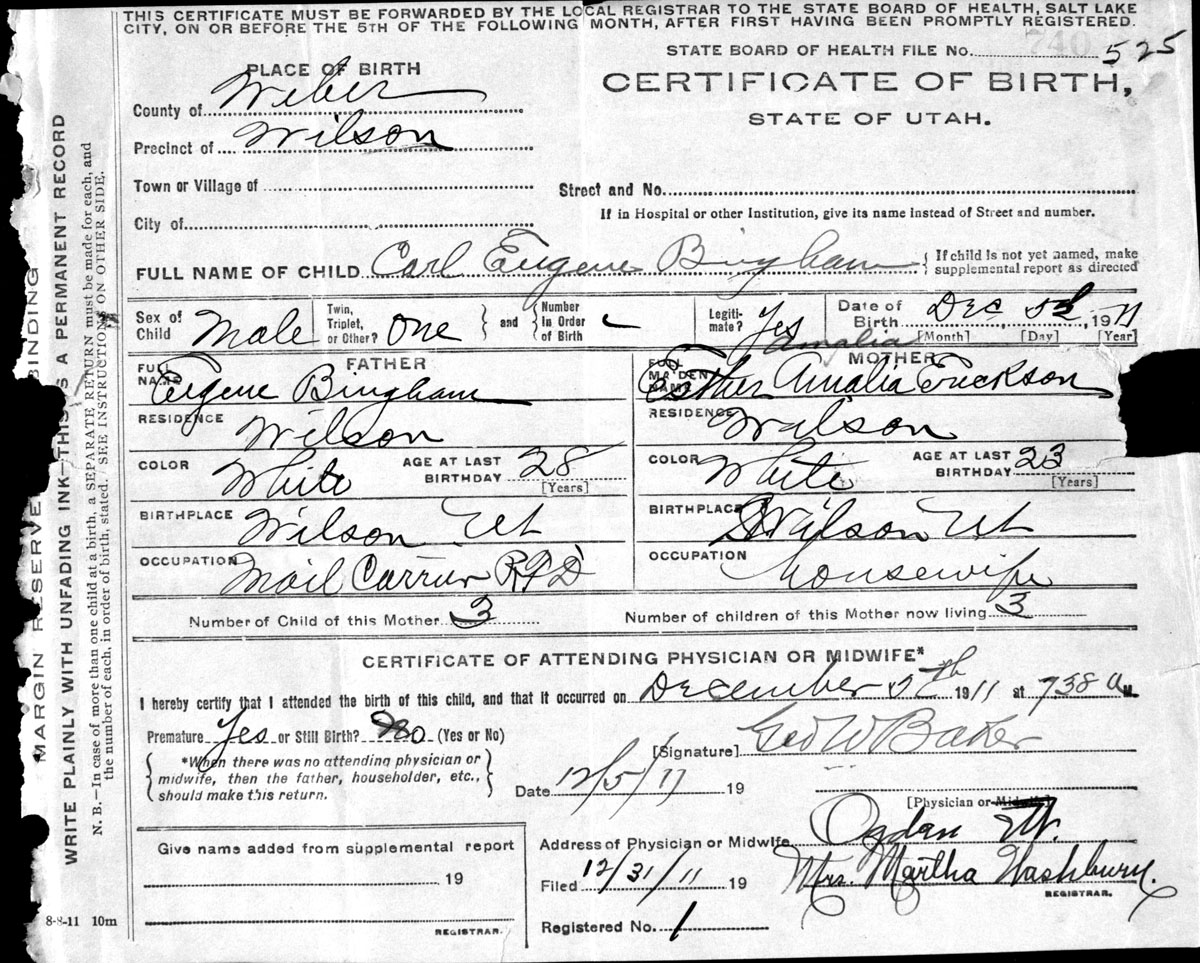 THIS CERTIFICATE MUST BE FORWARDED BY THE LOCAL REGISTRAR TO THE STATE BOARD OF HEALTH, SALT LAKE
CITY, ON OR BEFORE THE 5TH OF THE FOLLOWING MONTH, AFTER FIRST HAVING BEEN PROMPTLY REGISTERED.
740
STATE BOARD OF HEALTH FILE No. 525
PLACE OF BIRTH
CERTIFICATE OF BIRTH,
STATE OF UTAH.
County of Weber
Precinct of Wilson
Town or Village of
Street and No.
If in Hospital or other Institution, give its name instead of Street and number.
City of
FULL NAME OF CHILD Carl Eugene Bingham { If child is not yet named, make
supplemental report as directed
Sex of Child Male
Twin, Triplet, or Other? One } and { Number in Order of Birth
Legiti-mate? Yes
Date of Birth Dec 5th, 1911
[Month] [Day] [Year]
Amalia
FATHER
MOTHER
FULL NAME Eugene Bingham
FULL MAIDEN NAME Esther Amalia Erickson
RESIDENCE Wilson
RESIDENCE Wilson
COLOR White AGE AT LAST BIRTHDAY 28 [Years]
COLOR White AGE AT LAST BIRTHDAY 23 [Years]
BIRTHPLACE Wilson Ut
BIRTHPLACE Wilson Ut
OCCUPATION Mail Carrier RFD
OCCUPATION Housewife
Number of Child of this Mother 3
Number of children of this Mother now living 3
CERTIFICATE OF ATTENDING PHYSICIAN OR MIDWIFE*
I hereby certify that I attended the birth of this child, and that it occurred on December 5th 1911 at 738 a M
Premature Yes or Still Birth? No (Yes or No)
[Signature] Geo W Baker
{ *When there was no attending physician or
midwife, then the father, householder, etc.,
should make this return. }
Date 12/5/11 19
[Physician or Midwife]
Address of Physician or Midwife Ogden Ut.
Give name added from supplemental report
19
Filed 12/31/11 19 Mrs. Martha Washburn.
REGISTRAR.
Registered No. 1
REGISTRAR.
8-8-11 10m
MARGIN RESERVE BINDING
WRITE PLAINLY WITH UNFADING INK—THIS IS A PERMANENT RECORD
N. B.—In case of more than one child at a birth, a SEPARATE RETURN must be made for each, and
the number of each, in order of birth, stated. SEE INSTRUCTIONS ON OTHER SIDE.